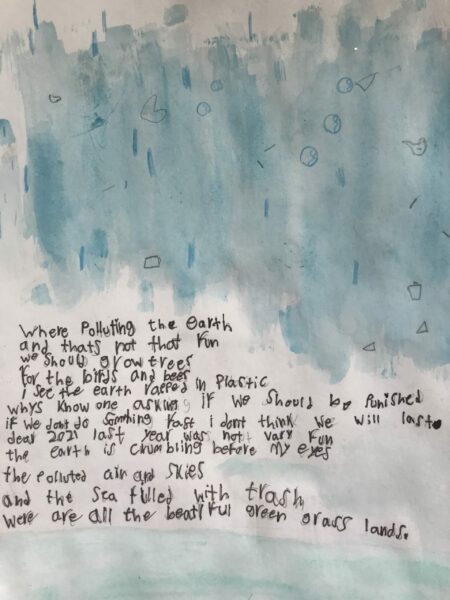 where Polluting the earth
and thats not that fun
we should grow trees
for the birds and bees
i see the earth rapped in Plastic
whys know one asking if we should be Punished
if we dont do something fast i dont think we will last
dear 2021 last year was not vary fun
the earth is crumbling before my eyes
the polluted air and skies
and the sea filled with trash
were are all the beatiful green grass lands.